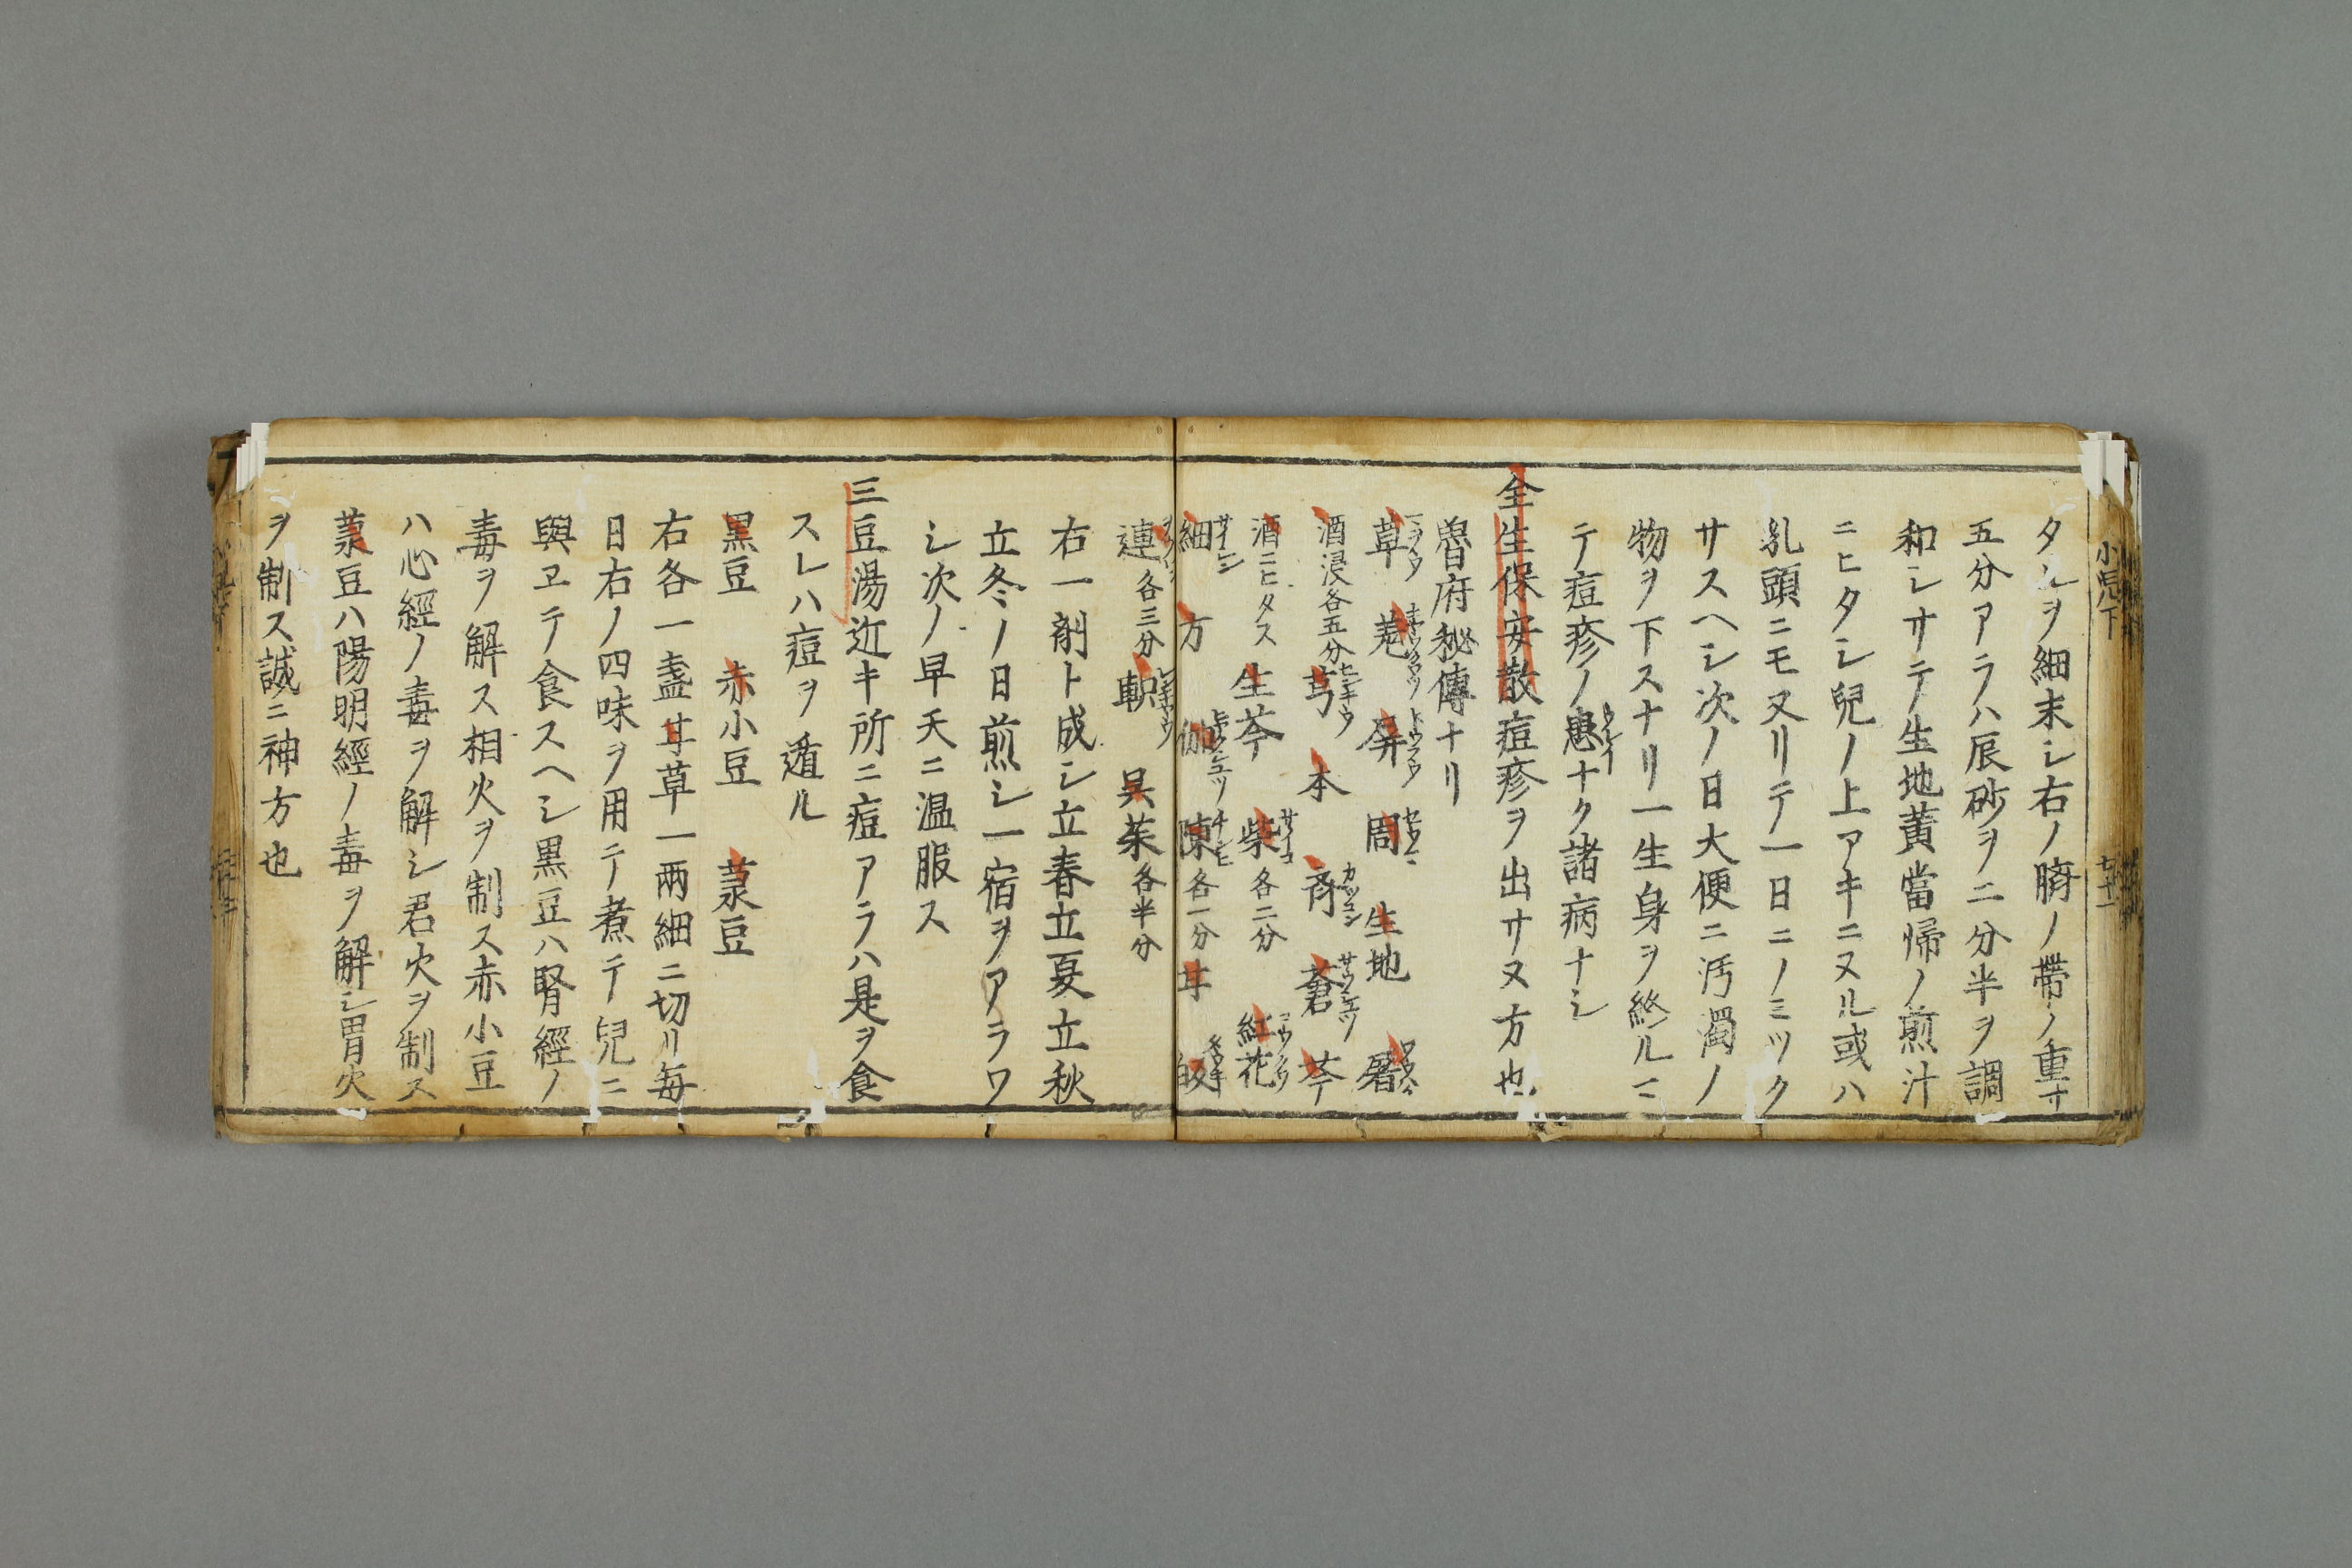 小兒下 七十一
タルヲ細末シ右ノ臍ノ帶ノ重サ
五分アラハ辰砂ヲ二分半ヲ調
和シサテ生地黄當帰ノ煎汁
ニヒタシ兒ノ上アキニヌル或ハ
乳頭ニモヌリテ一日ニノミツク
サスヘシ次ノ日大便ニ汚濁ノ
物ヲ下スナリ一生身ヲ終ルマ
テ痘疹ノ患ナク諸病ナシ
全生保安散痘疹ヲ出サヌ方也
魯府秘傳ナリ
草 羗 屏 周 生地
酒浸各五分 芎 本 蒼 芩
酒ニヒタス 生芩 柴各二分 紅花
細 方 陳各一分 甘
連各三分 呉茱各半分
右一劑ト成シ立春立夏立秋
立冬ノ日煎シ一宿ヲアラワ
シ次ノ早天ニ温服ス
三豆湯近キ所ニ痘アラハ是ヲ食
スレハ痘ヲ遁ル
黒豆 赤小豆 菉豆
右各一盞甘草一兩細ニ切リ毎
日右ノ四味ヲ用テ煮テ兒ニ
與ヱテ食スヘシ黒豆ハ腎經ノ
毒ヲ解ス相火ヲ制ス赤小豆
ハ心經ノ毒ヲ解シ君火ヲ制ス
菉豆ハ陽明經ノ毒ヲ解シ胃火
ヲ制ス誠ニ神方也